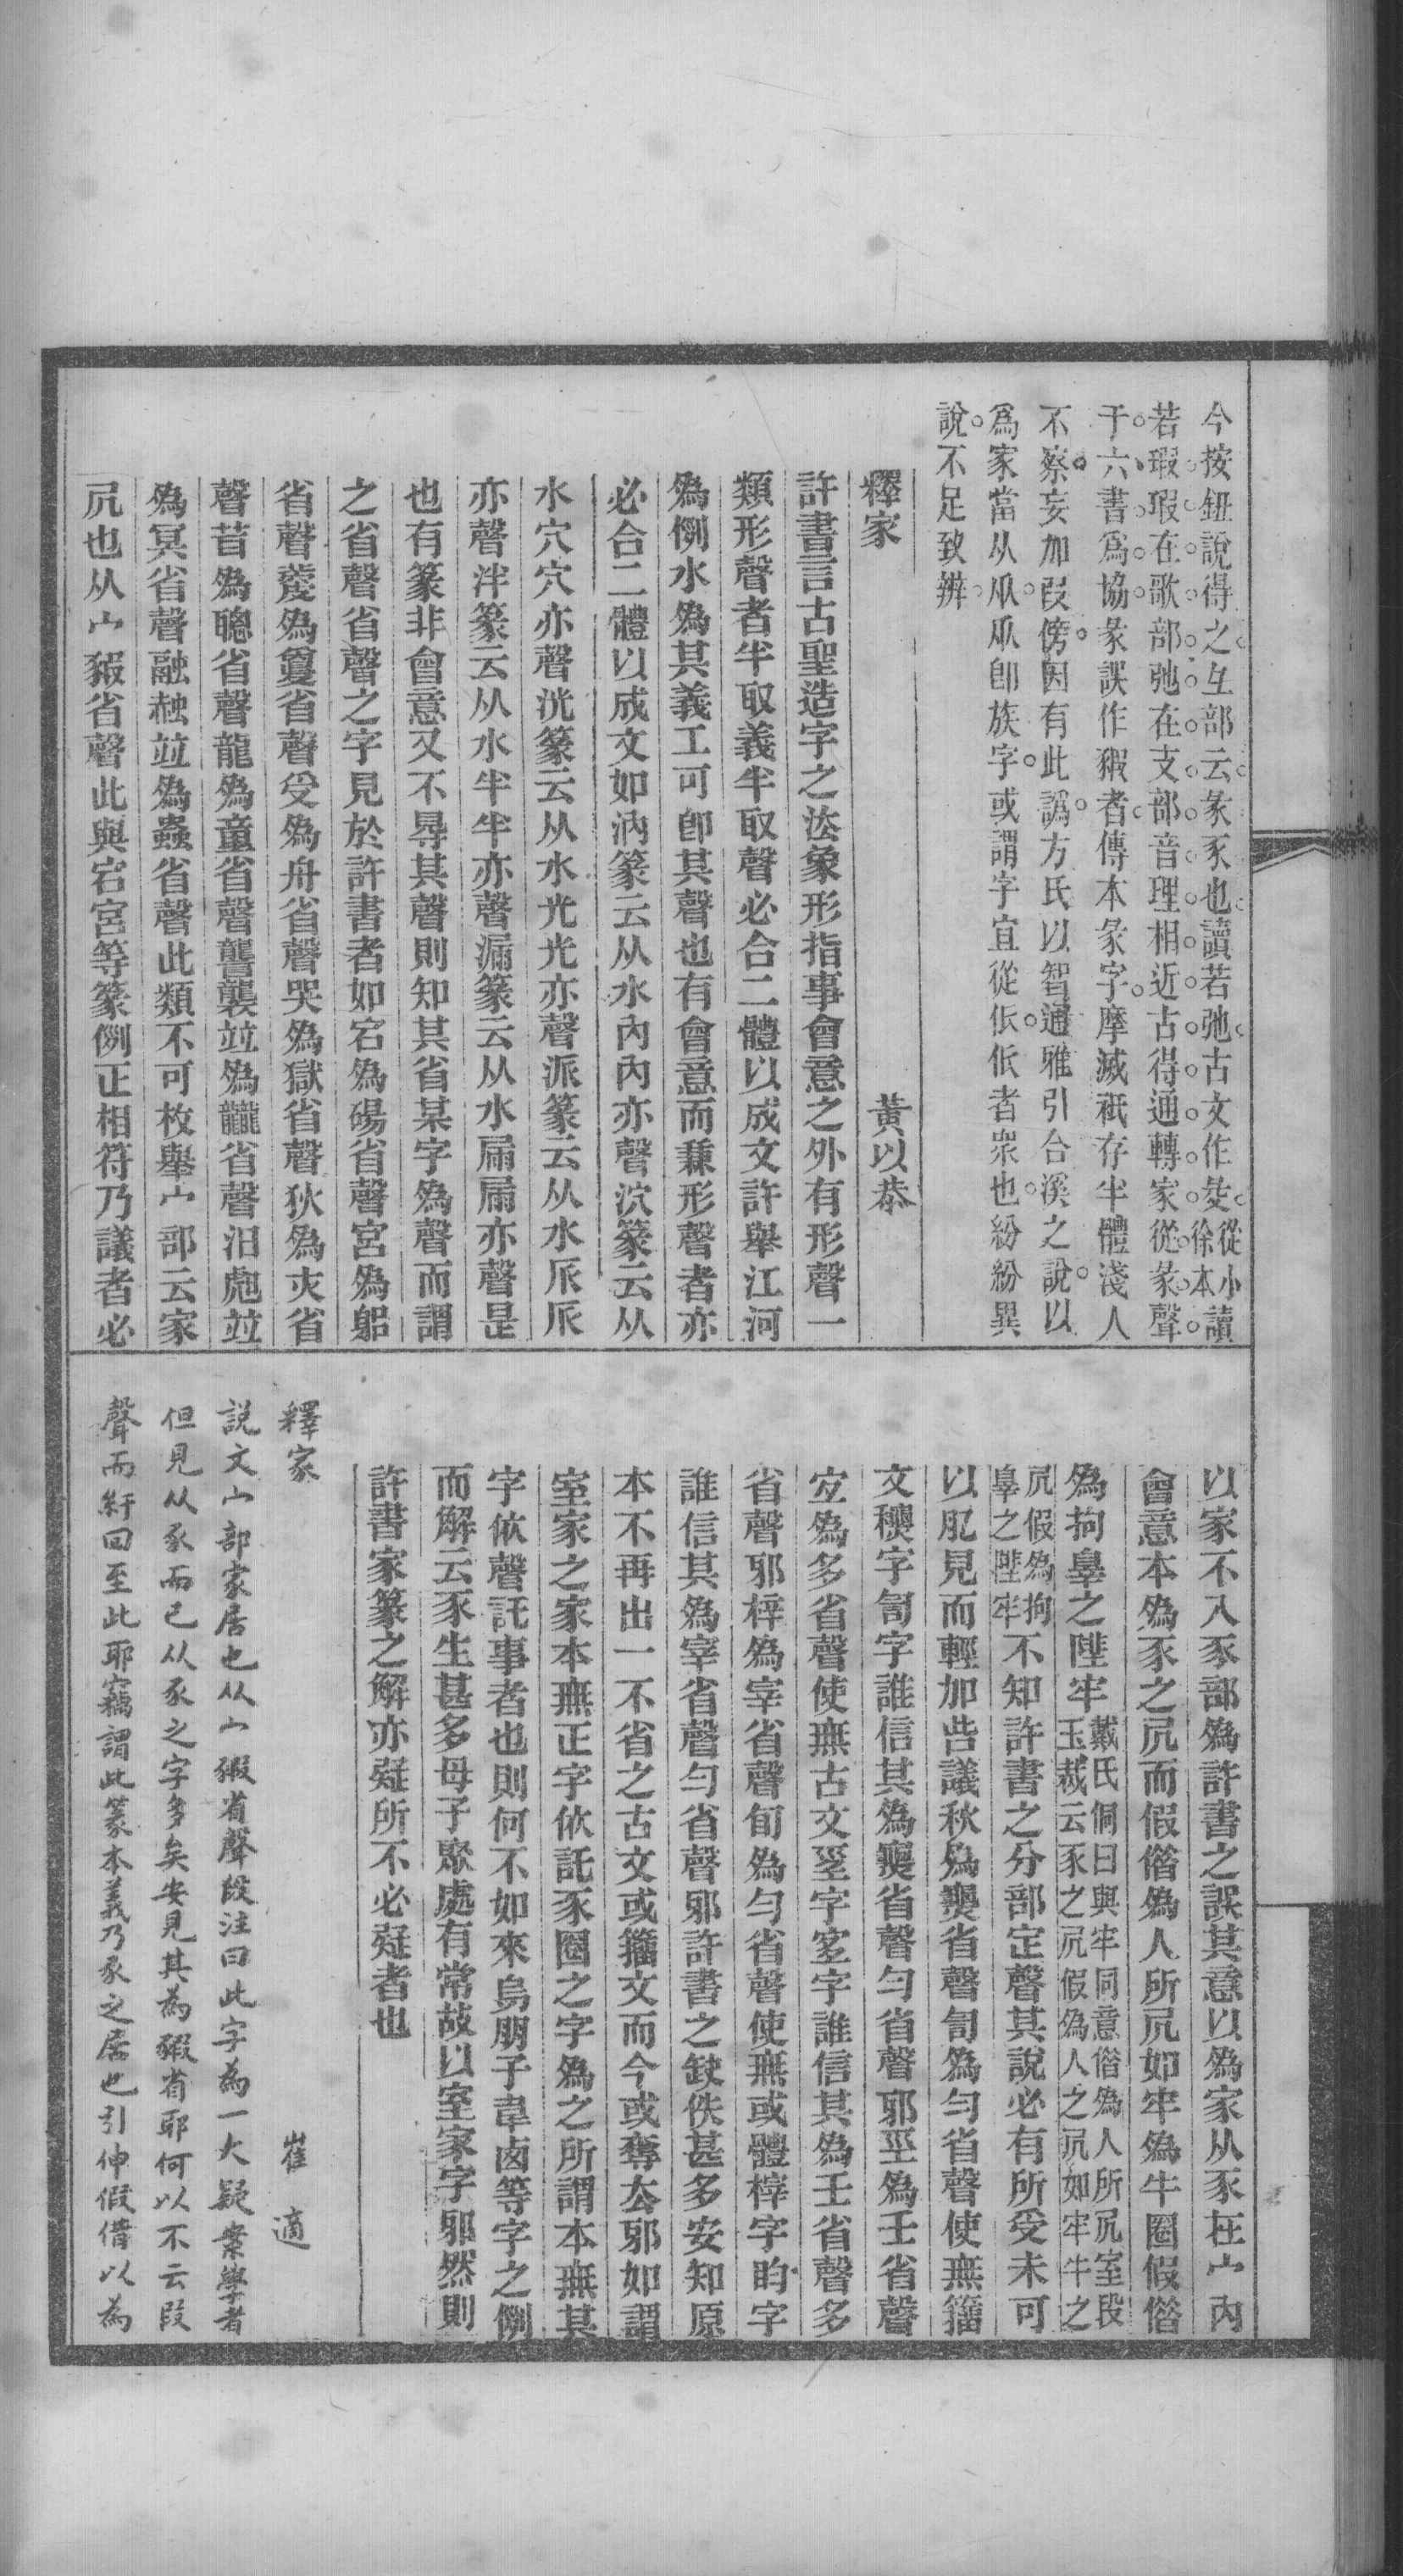 今按鈕說得之彑部云彖豕也讀若弛古文作𢑓徐本從小讀
若瑕瑕在歌部弛在支部音理相近古得通轉家從彖聲
于六書爲協彖誤作豭者傳本彖字摩滅祇存半體淺人
不察妄加叚傍因有此譌方氏以智通雅引台溪之說以
爲家當从㐺㐺卽族字或謂字宜從㐺㐺者眾也紛紛異
說不足致辨
釋家 黃以恭
許書言古聖造字之法象形指事會意之外有形聲一
類形聲者半取義半取聲必合二體以成文許舉江河
爲例水爲其義工可卽其聲也有會意而兼形聲者亦
必合二體以成文如汭篆云从水內內亦聲泬篆云从
水穴穴亦聲洸篆云从水光光亦聲派篆云从水𠂢𠂢
亦聲泮篆云从水半半亦聲漏篆云从水屚屚亦聲是
也有篆非會意又不㝵其聲則知其省某字爲聲而謂
之省聲省聲之字見於許書者如宕爲碭省聲宮爲躳
省聲夔爲夐省聲受爲舟省聲哭爲獄省聲狄爲亦省
聲昔爲聰省聲龍爲童省聲讋襲竝爲龖省聲汨虒竝
爲冥省聲融䖝竝爲蟲省聲此類不可枚舉宀部云家
凥也从宀豭省聲此與宕宮等篆例正相符乃議者必
以家不入豕部爲許書之誤其意以爲家从豕在宀內
會意本爲豕之凥而假借爲人所凥如牢爲牛圈假借
爲拘辠之陛牢戴氏侗曰與牢同意借爲人所凥室段玉裁云豕之凥假爲人之凥如牢牛之
凥假爲拘辠之陛牢不知許書之分部定聲其說必有所受未可
以肊見而輕加訾議秋爲𤒅省聲訇爲勻省聲使無籀
文穐字訇字誰信其爲𤒅省聲勻省聲邪巠爲壬省聲
宜爲多省聲使無古文巠字宐字誰信其爲壬省聲多
省聲邪梓爲宰省聲旬爲勻省聲使無或體榟字眴字
誰信其爲宰省聲勻省聲邪許書之缺佚甚多安知原
本不再出一不省之古文或籀文而今或奪去邪如謂
室家之家本無正字依託豕圈之字爲之所謂本無其
字依聲託事者也則何不如來烏朋子韋卤等字之例
而解云豕生甚多母子聚處有常故以室家字邪然則
許書家篆之解亦疑所不必疑者也
釋家 崔適
說文宀部家居也从宀豭省聲段注曰此字為一大疑案學者
但見从豕而已从豕之字多矣安見其為豭省耶何以不云叚
聲而紆回至此耶竊謂此篆本義乃豕之居也引伸假借以為